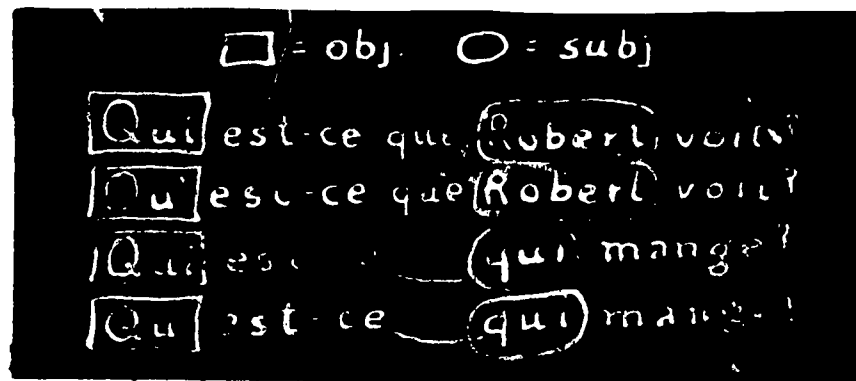 = obj. = subj
Qui est-ce que Robert voit?
Qu' est-ce que Robert voit?
Qui qui mange?
Qu' est-ce qui mange?